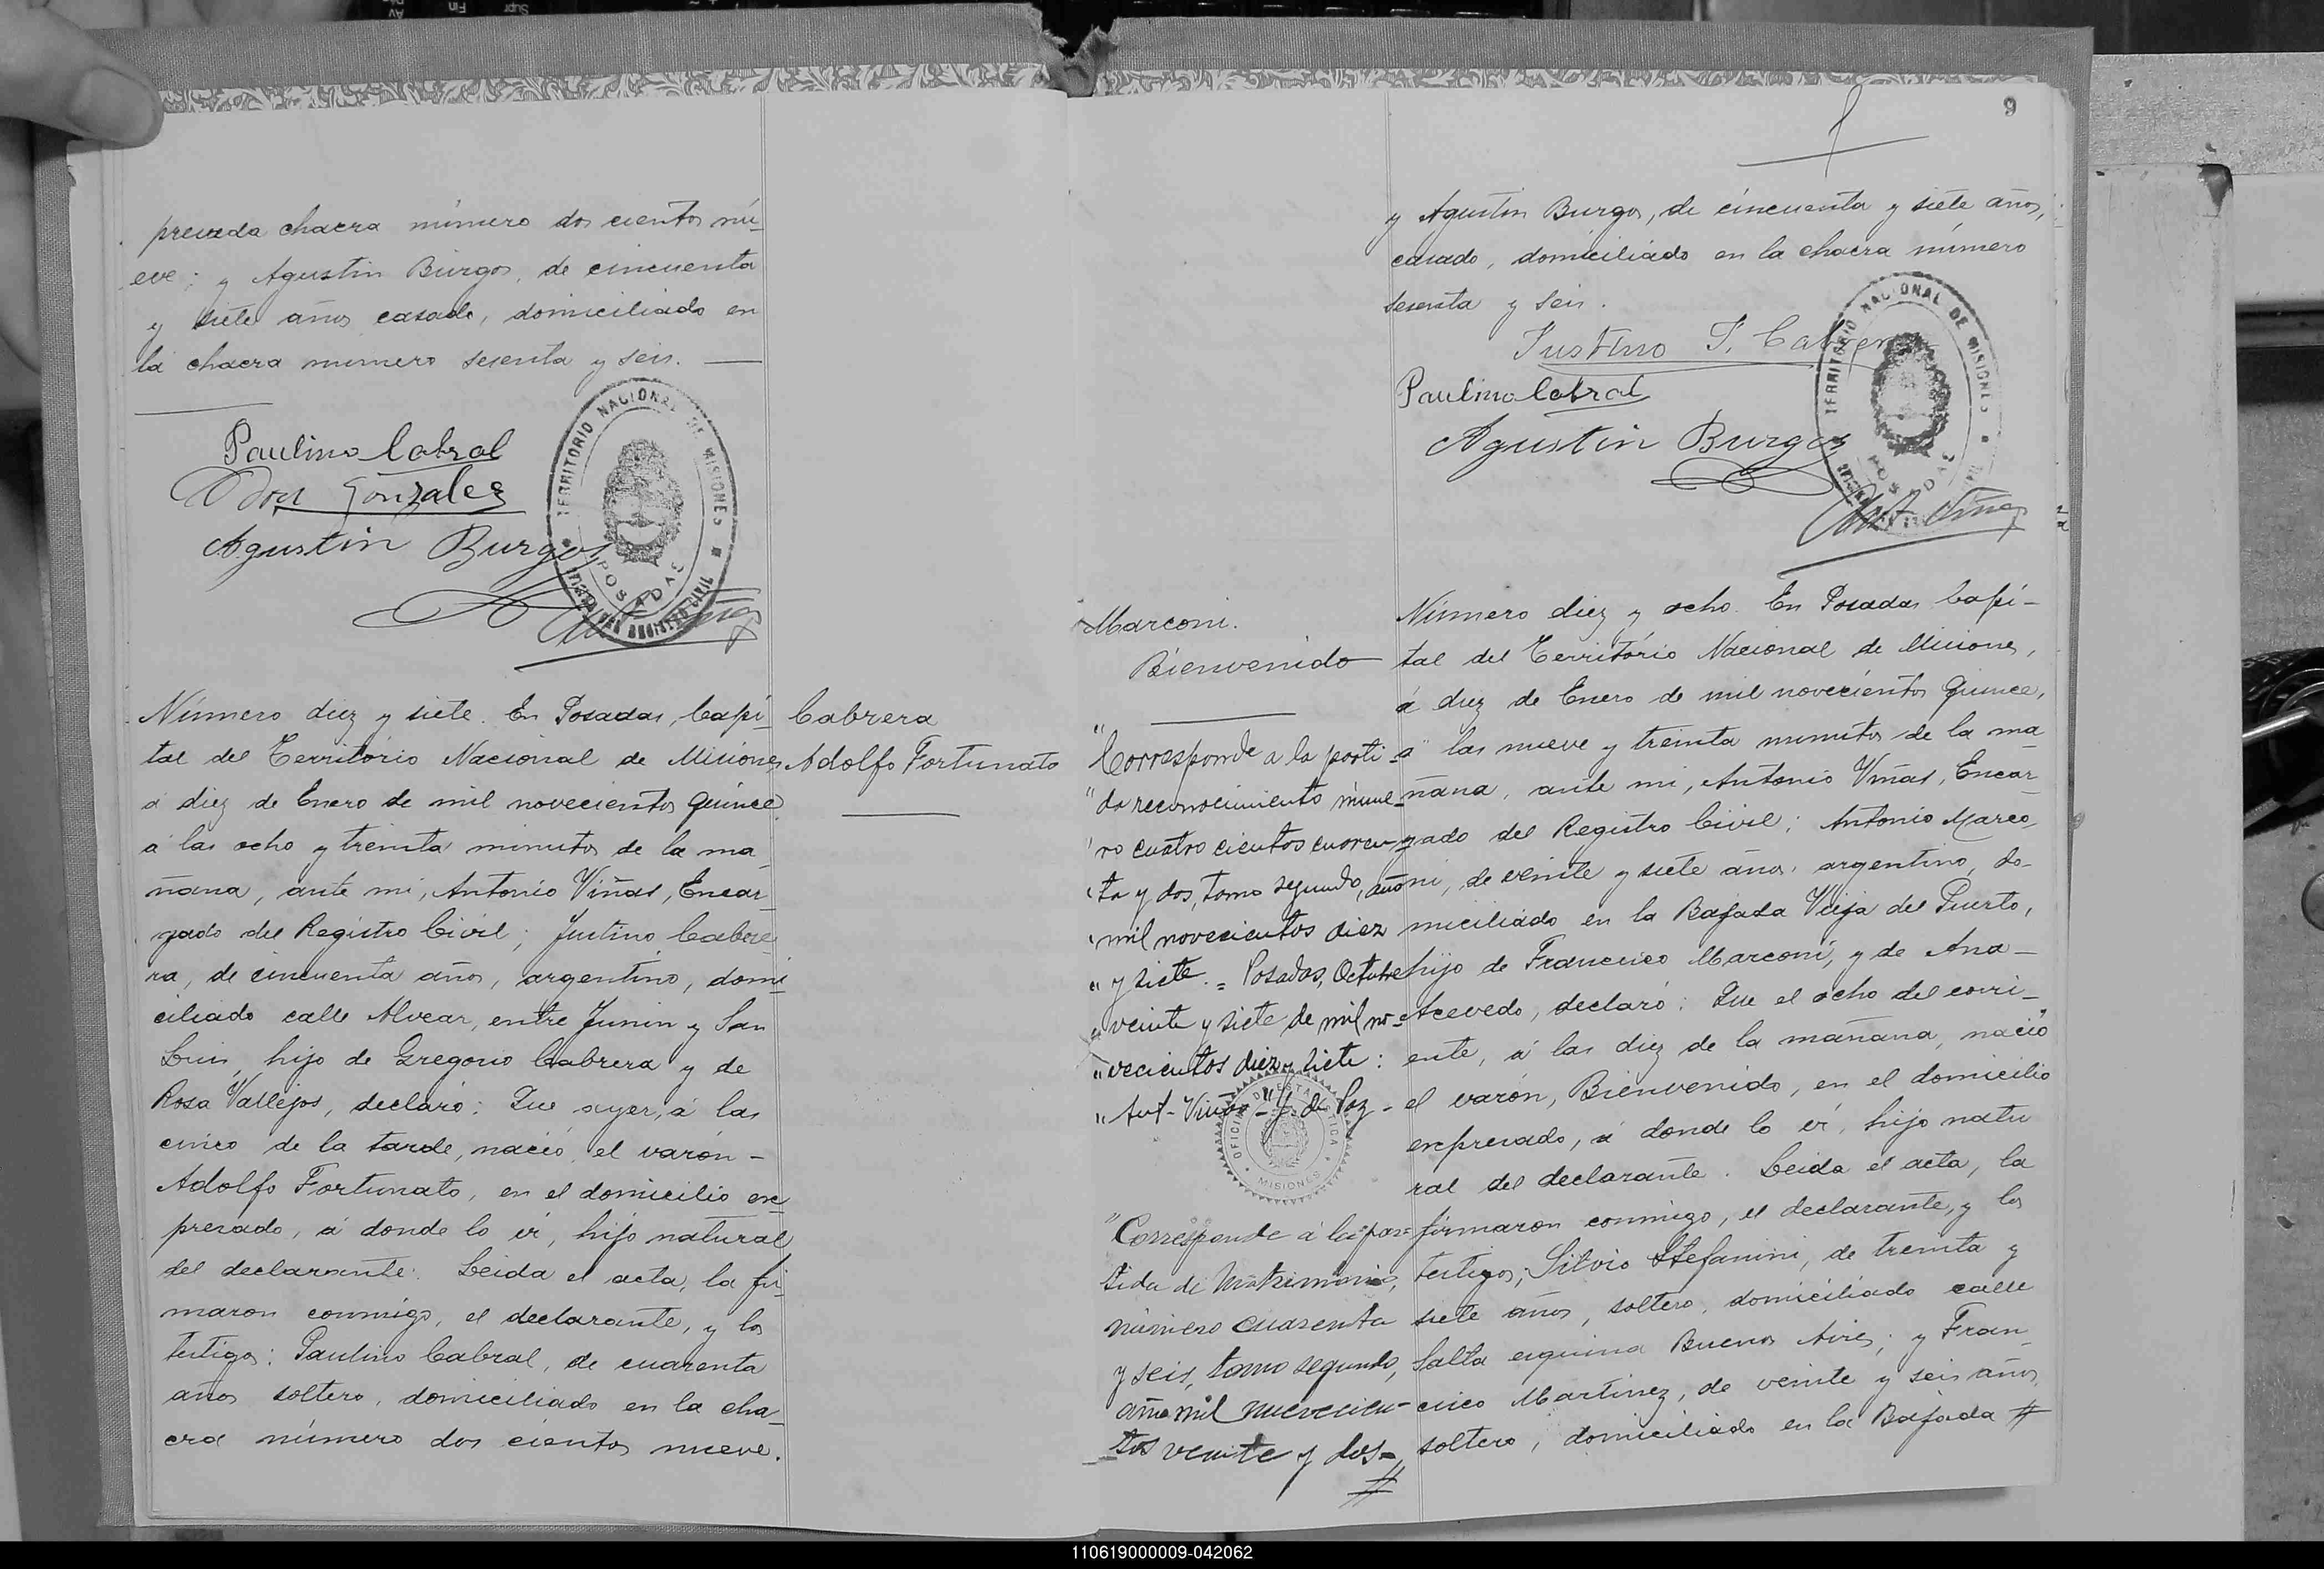 presada chacra número dos cientos nu-
eve; y Agustin Burgos, de cincuenta
y siete años casado, domiciliado en
la chacra numero sesenta y seis. —
Paulino Cabral
Gonzalez
Agustin Burgos
TERRITORIO NACIONAL DE MISIONES
POSADAS
REGISTRO CIVIL
Número diez y siete. En Posadas, Capi-
tal del Territorio Nacional de Misiones
á diez de Enero de mil novecientos quince
á las ocho y treinta minutos de la ma-
ñana, ante mi, Antonio Viñas, Encar-
gado del Registro Civil; Justino Cabre-
ra, de cincuenta años, argentino, domi-
ciliado calle Alvear, entre Junin y San
Luis, hijo de Gregorio Cabrera y de
Rosa Vallejos, declaró: Que ayer, á las
cinco de la tarde, nació el varón -
Adolfo Fortunato, en el domicilio ex-
presado, á donde lo ví, hijo natural
del declarante. Leida el acta, la fir-
maron conmigo, el declarante, y los
testigos: Paulino Cabral, de cuarenta
años soltero, domiciliado en la cha-
cra número dos cientos nueve.
Cabrera
Adolfo Fortunato
9
y Agustin Burgos, de cincuenta y siete años,
casado, domiciliado en la chacra número
sesenta y seis.
Justino F. Cabrera
Paulino Cabral
Agustin Burgos
TERRITORIO NACIONAL DE MISIONES
POSADAS
Ant Viñas
Marconi.
Bienvenido
"Corresponde a la parti-
"da reconocimiento núme-
"ro cuatro cientos cuaren-
"ta y dos, tomo segundo, año
"mil novecientos diez
"y siete. = Posadas, Octubre
"veinte y siete de mil no=
"vecientos diez y siete:
"Ant- Viñas - J. de Paz -
OFICINA DE ESTADISTICA
MISIONES
"Corresponde á la par=
tida de Matrimonio,
número cuarenta
y seis, tomo segundo,
año mil nuevecien-
tos veinte y dos=
#
Número diez y ocho. En Posadas Capi-
tal del Territorio Nacional de Misiones,
á diez de Enero de mil novecientos quince,
á las nueve y treinta minutos de la ma-
ñana, ante mi, Antonio Viñas, Encar-
gado del Registro Civil; Antonio Marco-
ni, de veinte y siete años, argentino, do-
miciliado en la Bajada Vieja del Puerto,
hijo de Francisco Marconi, y de Ana -
Acevedo, declaró: Que el ocho del corri-
ente, á las diez de la mañana, nació
el varón, Bienvenido, en el domicilio
expresado, á donde lo ví, hijo natu
ral del declarante. Leida el acta, la
firmaron conmigo, el declarante, y los
testigos; Silvio Stefanini, de treinta y
siete años, soltero, domiciliado calle
Salta esquina Buenos Aires; y Fran-
cisco Martinez, de veinte y seis años,
soltero, domiciliado en la Bajada #
110619000009-042062